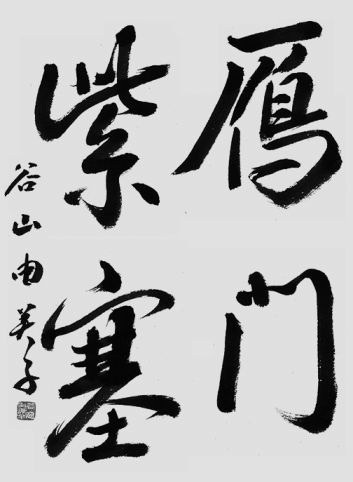 雁門
紫塞
谷山由美子